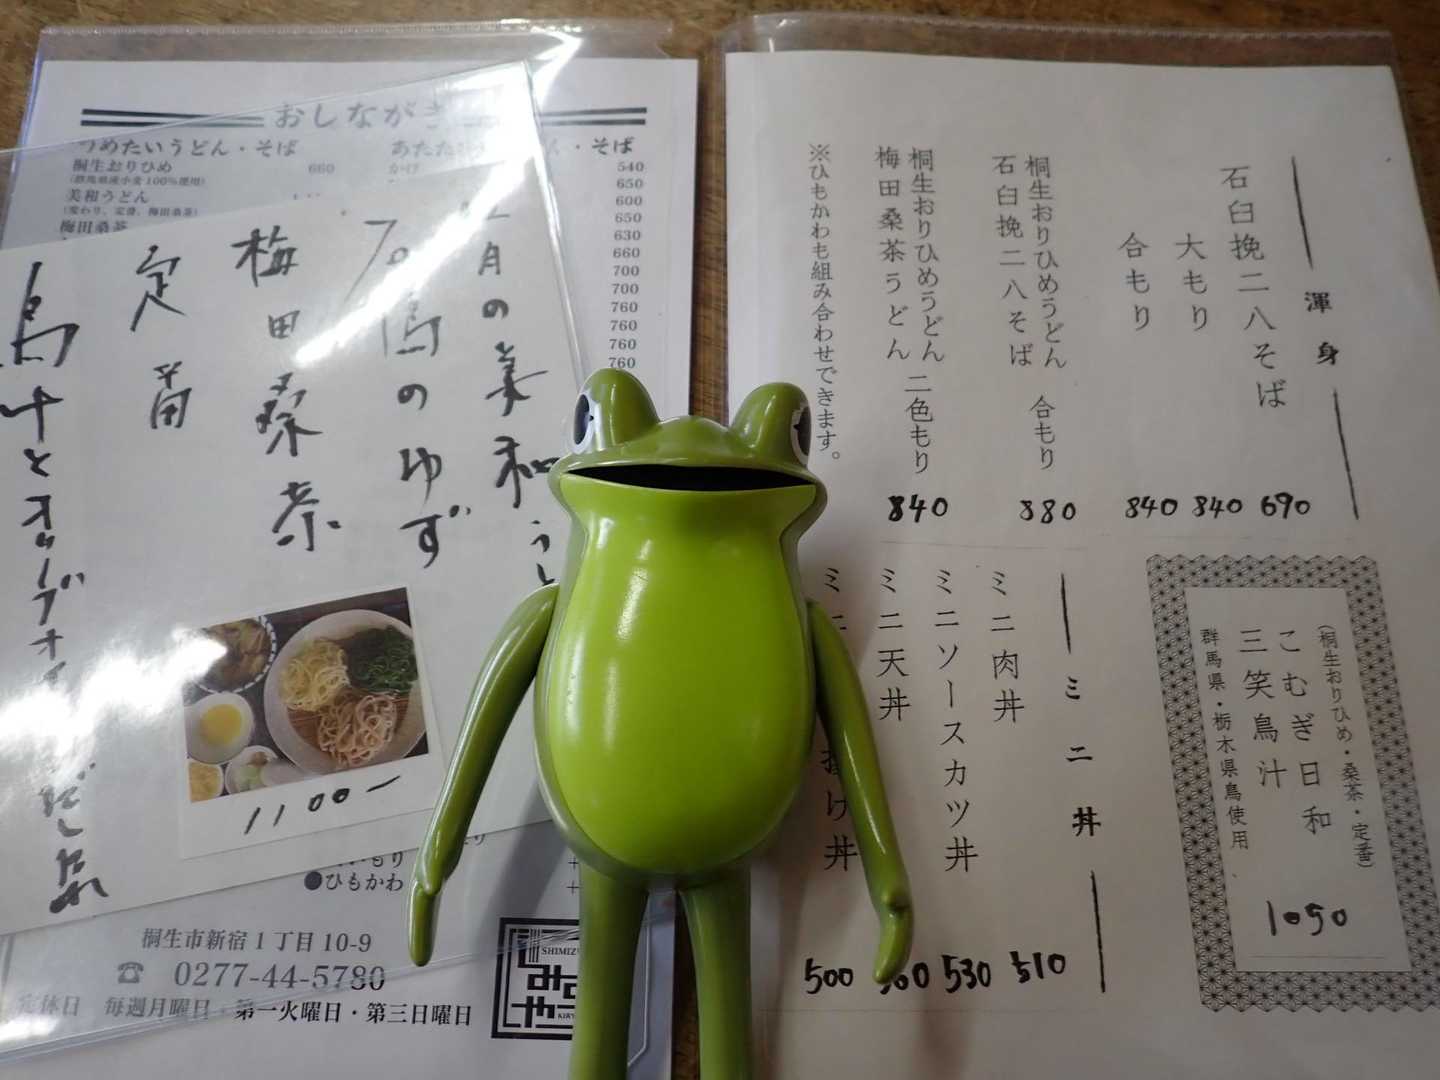 おしながき
つめたいうどん・そば
桐生おりひめ 660
(群馬県産小麦100%使用)
美和うどん
(変わり、定番、梅田桑茶)
梅田桑茶
・そば
かけ 540
650
600
650
630
660
700
700
760
760
760
760
月の美和う
の ゆず
梅田桑茶
定番
1100-
●ひもかわ
桐生市新宿1丁目10-9
☎ 0277-44-5780
定休日 毎週月曜日・第一火曜日・第三日曜日
SHIMIZU
渾身
石臼挽二八そば 690
大もり 840
合もり 840
桐生おりひめうどん
石臼挽二八そば 合もり 880
桐生おりひめうどん
梅田桑茶うどん 二色もり 840
※ひもかわも組み合わせできます。
ミニ丼
ミニ肉丼 510
ミニソースカツ丼 530
ミニ天丼
け丼 500
(桐生おりひめ・桑茶・定番)
こむぎ日和
三笑鳥汁
群馬県・栃木県鳥使用
1050